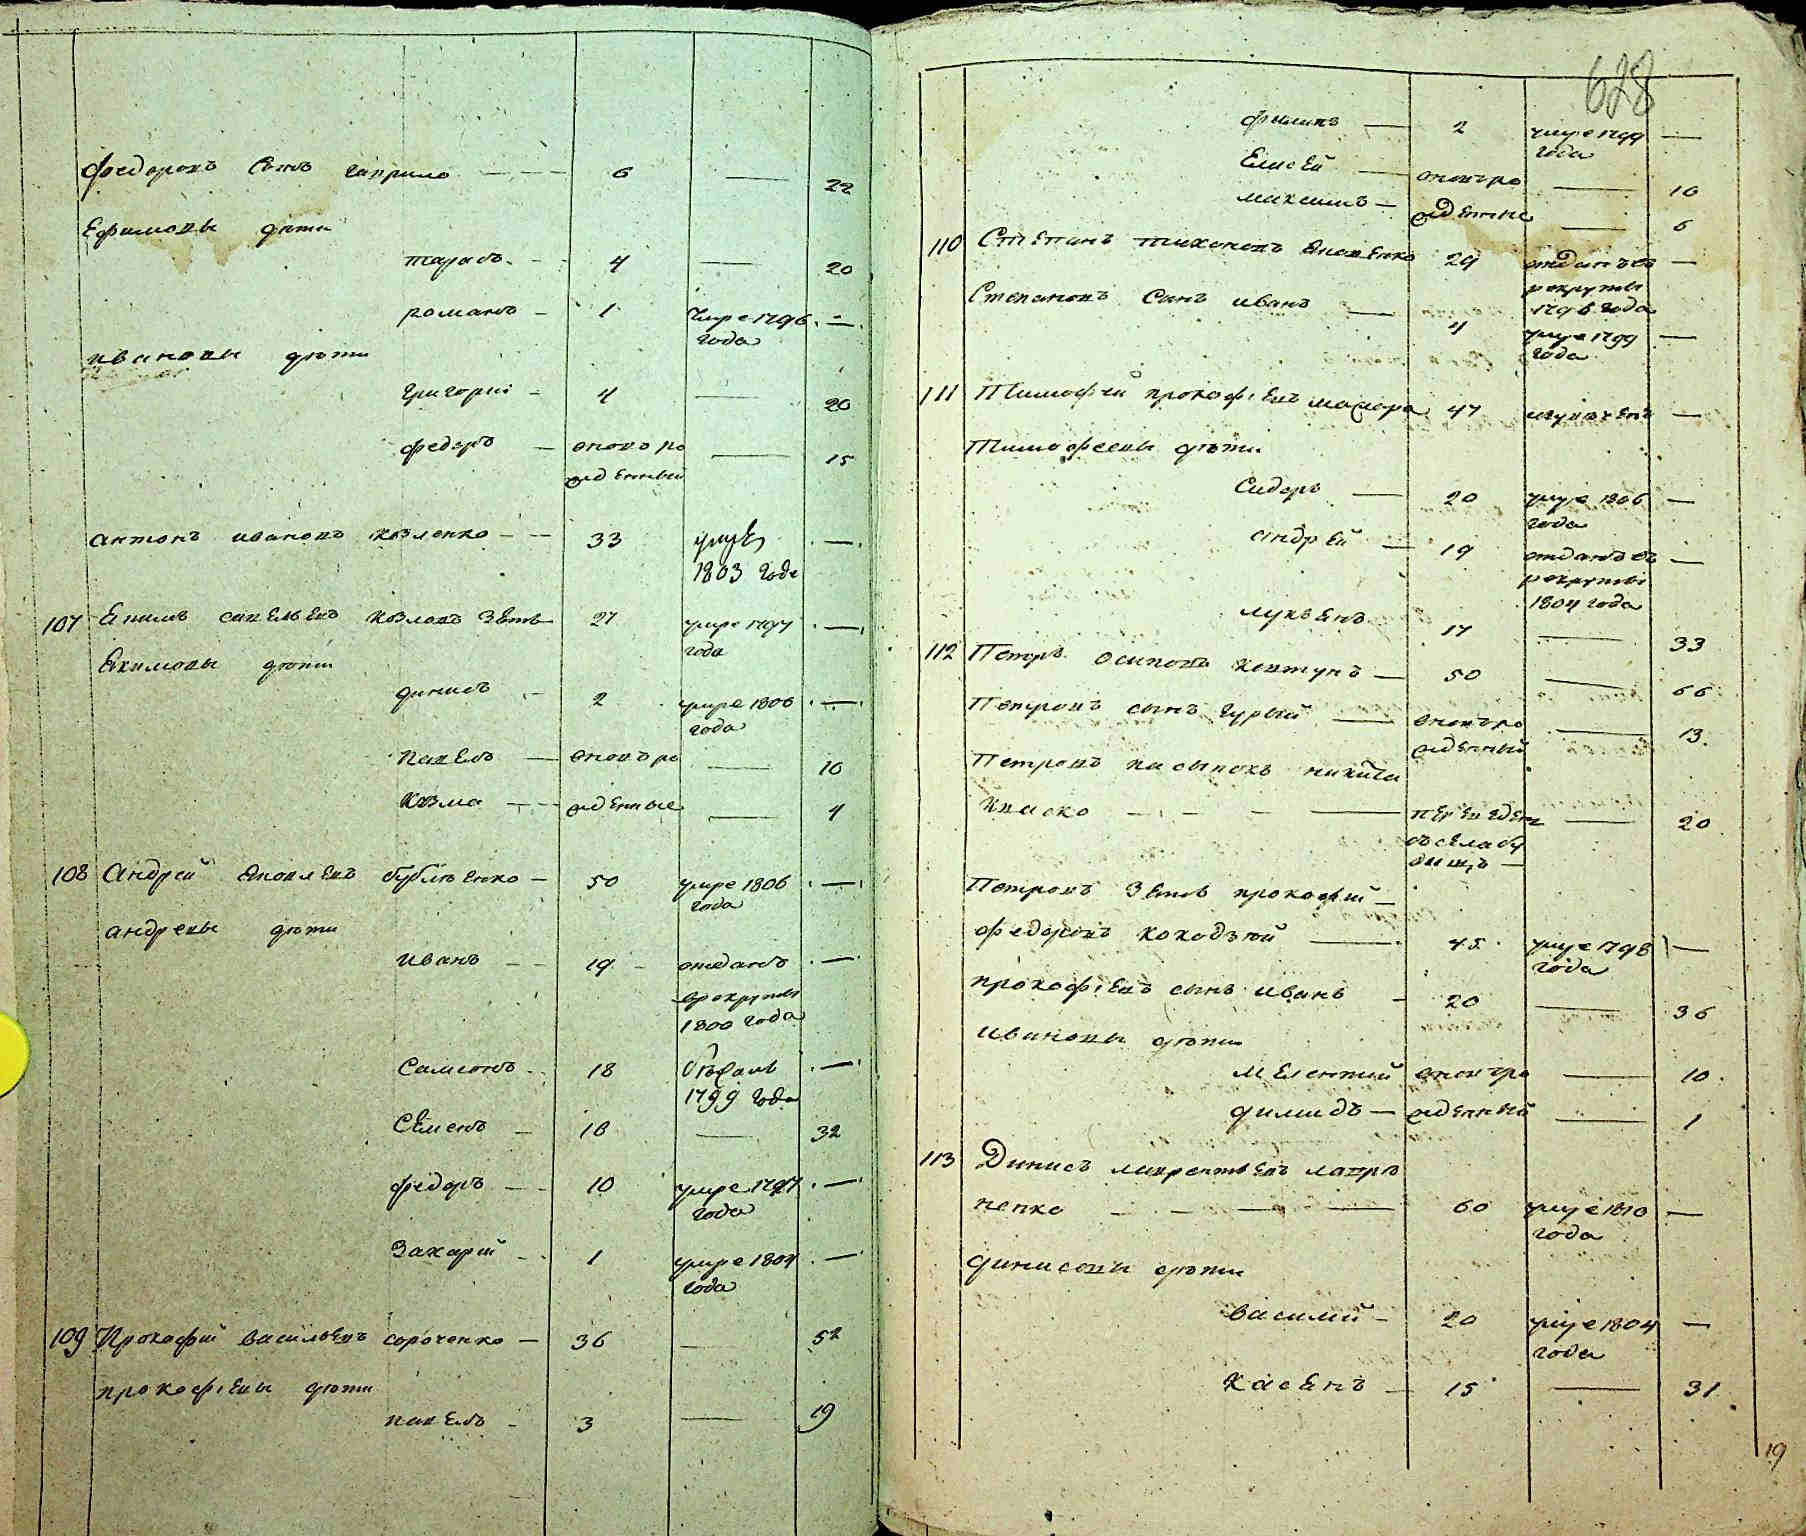 Федоровъ Сынъ гаврило — 6 — 22
Ефимовы дѣти
тарасъ — 4 — 20
романъ — 1 умре 1796 —
года
ивановы дѣти
григорий — 4 — 20
федоръ — вновь ро — 15
жденный
антонъ ивановъ козленко — 33 умре —
1803 года
107 Екимъ савельевъ козловъ Зять 27 умре 1797 —
года
Екимовы дѣти
динисъ — 2 умре 1806 —
года
павелъ — вновь ро — 10
козма — жденные — 4
108 Андрей Яковлевъ бублѣенко — 50 умре 1806 —
года
андреевы дѣти
иванъ — 19 отданъ —
врекруты
1800 года
Самсонъ — 18 —
1799 года
Семенъ — 16 — 32
федоръ — 10 умре 1797 —
года
Захарий — 1 умре 1804 —
года
109 Прокофий васильевъ сороченко — 36 — 52
прокофиевы дѣти
павелъ — 3 — 19
628
филипъ — 2 умре 1799 —
года
Елисей — вновь ро — 10
максимъ — жденные — 6
110 Степанъ тихоновъ Яковенко 29 отданъ въ —
рекруты
1798 года
Степановъ Сынъ иванъ — 4 умре 1799 —
года
111 Тимофей прокофиевъ 47 —
Тимофеевы дѣти
Сидоръ — 20 умре 1806 —
года
андрей — 19 отданъ въ —
рекруты
1804 года
лукьянъ 17 — 33
112 Петръ осиповъ ковтунъ — 50 — 66
Петровъ сынъ гурый — вновь ро — 13
жденный
Петровъ пасынокъ никита
кваско — переведен — 20
Петровъ Зять прокофий —
федоровъ — 45 умре 1798 —
года
прокофиевъ сынъ иванъ — 20 — 36
ивановы дѣти
мелентий вновь ро — 10
димидъ — жденный — 1
113 Динисъ лаврентьевъ лаврѣ
ненко — 60 умре 1810 —
года
динисовы дѣти
василий — 20 умре 1804 —
года
касянъ — 15 — 31
19